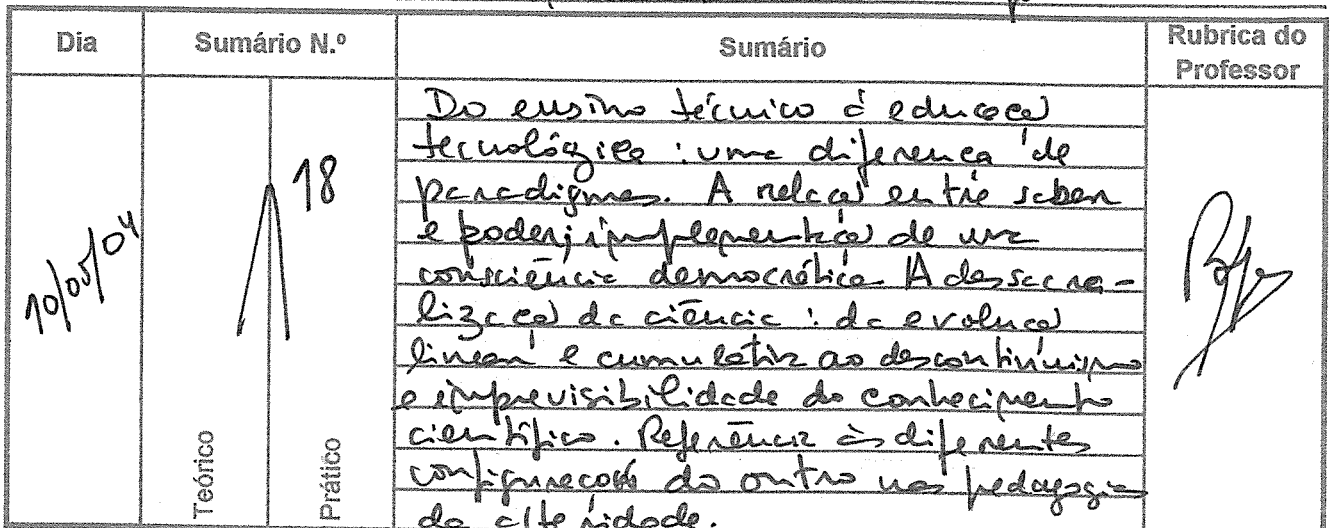 Dia
Sumário N.º
Sumário
Rubrica do
Professor
10/05/04
18
Teórico
Prático
Do ensino técnico à educação
tecnológica : uma diferença de
paradigmas. A relação entre saber
e poder; implementação de uma
consciência democrática. A dessacra-
lização da ciência : da evolução
linear e cumulativa ao descontinuismo
e imprevisibilidade do conhecimento
científico. Referência às diferentes
configurações do outro nas pedagogias
da alteridade.